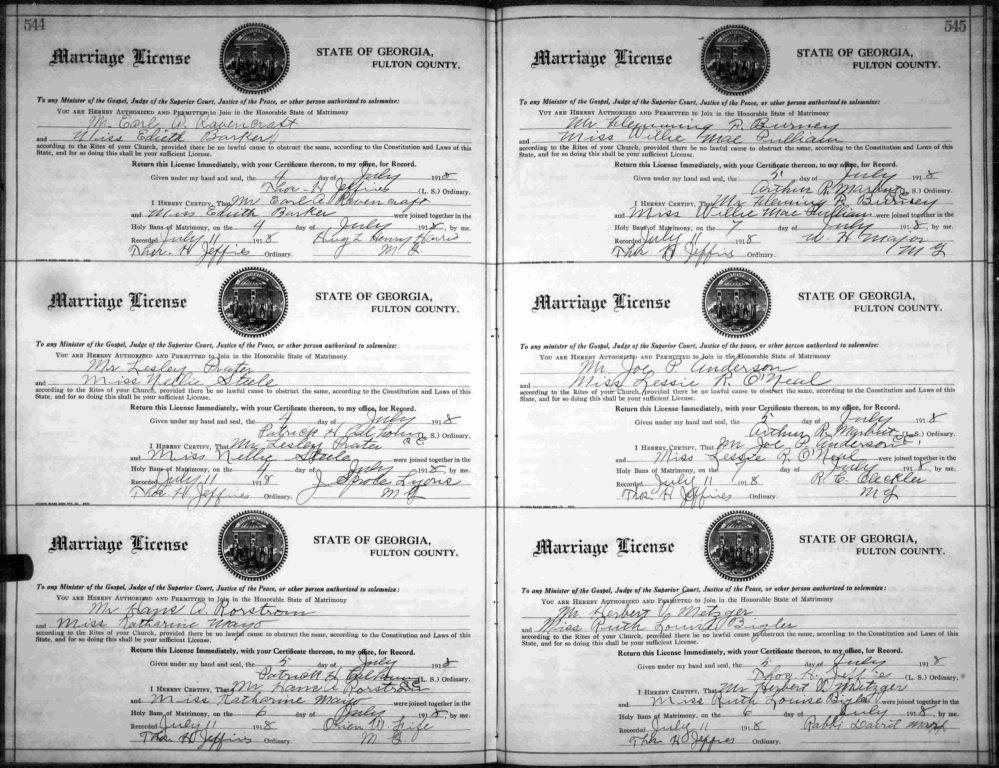 544
Marriage License
STATE OF GEORGIA,
FULTON COUNTY.
To any Minister of the Gospel, Judge of the Superior Court, Justice of the Peace, or other person authorized to solemnize:
YOU ARE HEREBY AUTHORIZED AND PERMITTED to Join in the Honorable State of Matrimony
Mr. Earl A. Ravencraft
and Miss Edith Barker
according to the Rites of your Church, provided there be no lawful cause to obstruct the same, according to the Constitution and Laws of this
State, and for so doing this shall be your sufficient License.
Return this License Immediately, with your Certificate thereon, to my office, for Record.
Given under my hand and seal, the 4 day of July 1918
Thos. H Jeffries (L. S.) Ordinary.
I HEREBY CERTIFY, That Mr Earl A Ravencraft
and Miss Edith Barker were joined together in the
Holy Bans of Matrimony, on the 4 day of July 1918, by me.
Recorded July 11 1918 Henry
Thos. H Jeffries Ordinary. M G
Marriage License
STATE OF GEORGIA,
FULTON COUNTY.
To any Minister of the Gospel, Judge of the Superior Court, Justice of the Peace, or other person authorized to solemnize:
YOU ARE HEREBY AUTHORIZED AND PERMITTED to Join in the Honorable State of Matrimony
Mr Lesley Prater
and Miss Nellie Steele
according to the Rites of your Church, provided there be no lawful cause to obstruct the same, according to the Constitution and Laws of this
State, and for so doing this shall be your sufficient License.
Return this License Immediately, with your Certificate thereon, to my office, for Record.
Given under my hand and seal, the 4 day of July 1918
Patrick H Calhoun (L. S.) Ordinary.
I HEREBY CERTIFY, That Mr Lesley Prater
and Miss Nellie Steele were joined together in the
Holy Bans of Matrimony, on the 4 day of July 1918, by me.
Recorded July 11 1918 J Sprole Lyons
Thos H Jeffries Ordinary. M G
Marriage License
STATE OF GEORGIA,
FULTON COUNTY.
To any Minister of the Gospel, Judge of the Superior Court, Justice of the Peace, or other person authorized to solemnize:
YOU ARE HEREBY AUTHORIZED AND PERMITTED to Join in the Honorable State of Matrimony
Mr Hans A. Korstrom
and Miss Katherine Mayo
according to the Rites of your Church, provided there be no lawful cause to obstruct the same, according to the Constitution and Laws of this
State, and for so doing this shall be your sufficient License.
Return this License Immediately, with your Certificate thereon, to my office, for Record.
Given under my hand and seal, the 5 day of July 1918
Patrick H Calhoun (L. S.) Ordinary.
I HEREBY CERTIFY, That Mr Hans A Korstrom
and Miss Katharine Mayo were joined together in the
Holy Bans of Matrimony, on the 6 day of July 1918, by me.
Recorded July 11 1918 Orien W. Fife
Thos H Jeffries Ordinary. M G
545
Marriage License
STATE OF GEORGIA,
FULTON COUNTY.
To any Minister of the Gospel, Judge of the Superior Court, Justice of the Peace, or other person authorized to solemnize:
YUT ARE HEREBY AUTHORIZED AND PERMITTED to Join in the Honorable State of Matrimony
Mr Flemming R. Burney
and Miss Willie Mae Pulliam
according to the Rites of your Church, provided there be no lawful cause to obstruct the same, according to the Constitution and Laws of this
State, and for so doing this shall be your sufficient License.
Return this License Immediately, with your Certificate thereon, to my office, for Record.
Given under my hand and seal, the 5 day of July 1918
Arthur R. Marbut S.) Ordinary.
I HEREBY CERTIFY, That Mr Fleming R Burney
and Miss Willie Mae Pulliam were joined together in the
Holy Bans of Matrimony, on the 7 day of July 1918, by me.
Recorded July 11 1918 W. H Major
Thos H Jeffries Ordinary. M G
Marriage License
STATE OF GEORGIA,
FULTON COUNTY.
To any minister of the Gospel, Judge of the Superior Court, Justice of the Peace, or other person authorized to solemnize:
YOU ARE HEREBY AUTHORIZED AND PERMITTED to Join in the Honorable State of Matrimony
Mr. Joe P Anderson
and Miss Lessie R. O'Neal
according to the Rites of your Church, provided there be no lawful cause to obstruct the same, according to the Constitution and Laws of this
State, and for so doing this shall be your sufficient License.
Return this License Immediately, with your Certificate thereon, to my office, for Record.
Given under my hand and seal, the 5 day of July 1918
Arthur R Marbut (L. S.) Ordinary.
I HEREBY CERTIFY, That Mr Joe P. Anderson
and Miss Lessie R. O'Neal were joined together in the
Holy Bans of Matrimony, on the 7 day of July 1918, by me.
Recorded July 11 1918 R. C. Cleckler
Thos H Jeffries Ordinary. M G
Marriage License
STATE OF GEORGIA,
FULTON COUNTY.
To any Minister of the Gospel, Judge of the Superior Court, Justice of the Peace, or other person authorized to solemnize:
YOU ARE HEREBY AUTHORIZED AND PERMITTED to Join in the Honorable State of Matrimony
Mr. Herbert Metzger
and Miss Ruth Louise Bigler
according to the Rites of your Church, provided there be no lawful cause to obstruct the same, according to the Constitution and Laws of this
State, and for so doing this shall be your sufficient License.
Return this License Immediately, with your Certificate thereon, to my office, for Record.
Given under my hand and seal, the 5 day of July 1918
Thos H. Jeffries (L. S.) Ordinary.
I HEREBY CERTIFY, That Mr Herbert Metzger
and Miss Ruth Louise Bigler were joined together in the
Holy Bans of Matrimony, on the 6 day of July 1918, by me.
Recorded July 11 1918 Rabbi David Marx
Thos H Jeffries Ordinary.